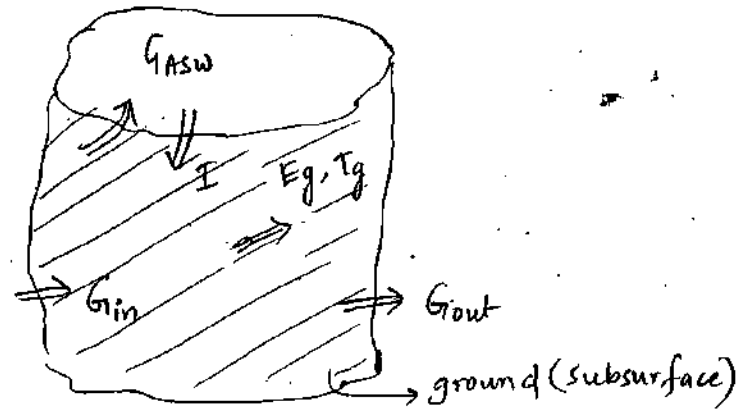 GASW
I
Eg, Tg
Gin
Gout
ground (subsurface)